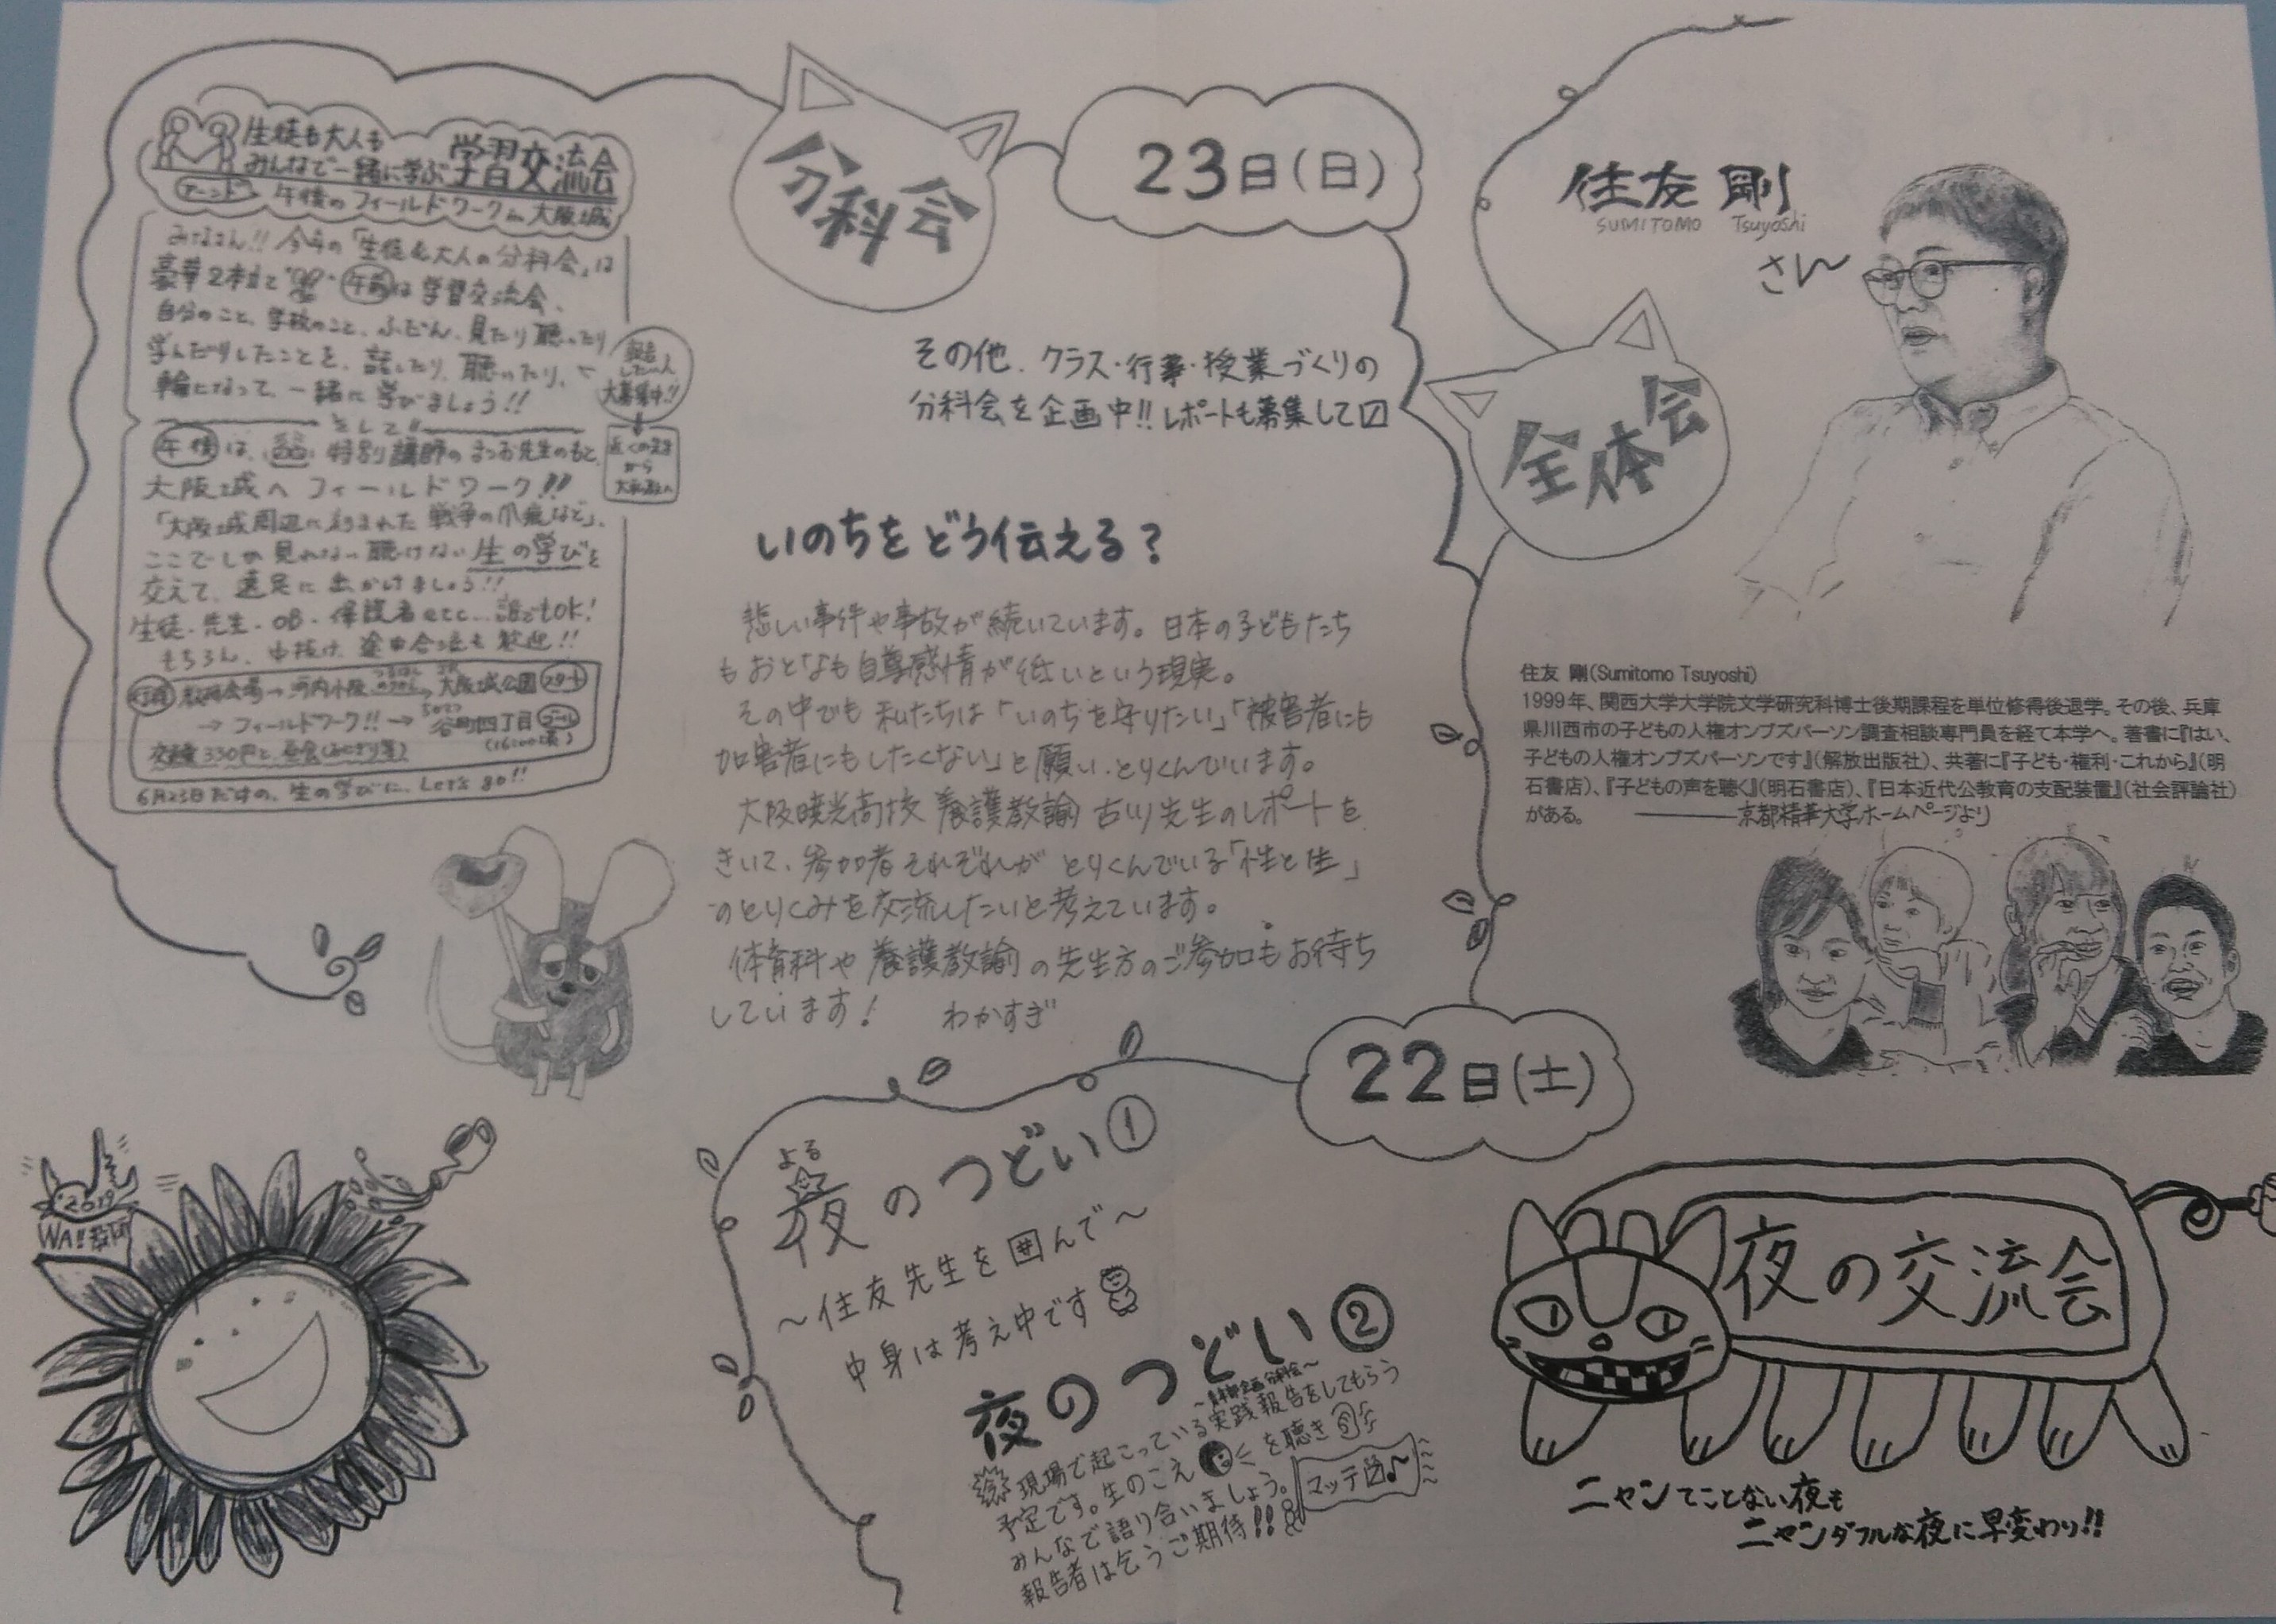 生徒も大人も
みんなで一緒に学ぶ 学習交流会
午後のフィールドワークin大阪城
みなさん!! 今年の「生徒&大人の分科会」は
豪華2本立て 午前は学習交流会、
自分のこと、学校のこと、ふだん、見たり聴いたり
学んだりしたことを、話したり、聴いたり、
輪になって、一緒に学びましょう!!
報告
したい人
大募集中!!
近くの先生
から
そして!!
午後は、特別講師のまつお先生のもと、
大阪城へフィールドワーク!!
「大阪城周辺に刻まれた戦争の爪痕など」、
ここでしか見れない聴けない生の学びを
交えて、遠足に出かけましょう!!
生徒・先生・OB・保護者etc...誰でもOK!
もちろん、中抜け、途中合流も歓迎!!
行程 教研会場→河内小阪→大阪城公園 スタート
→フィールドワーク!!→谷町四丁目 ゴール
交通費330円と、昼食(おにぎり等)
(16:00頃)
6月23日だけの、生の学びに、Let's go!!
分科会
23日(日)
その他、クラス・行事・授業づくりの
分科会を企画中!! レポートも募集して〼
いのちをどう伝える?
悲しい事件や事故が続いています。日本の子どもたち
もおとなも自尊感情が低いという現実。
その中でも私たちは「いのちを守りたい」「被害者にも
加害者にもしたくない」と願い、とりくんでいます。
大阪暁光高校 養護教諭 古川先生のレポートを
きいて、参加者それぞれがとりくんでいる「性と生」
のとりくみを交流したいと考えています。
体育科や養護教諭の先生方のご参加もお待ち
しています! わかすぎ
全体会
住友 剛
SUMITOMO Tsuyoshi
さん
住友 剛(Sumitomo Tsuyoshi)
1999年、関西大学大学院文学研究科博士後期課程を単位修得後退学。その後、兵庫
県川西市の子どもの人権オンブズパーソン調査相談専門員を経て本学へ。著書に『はい、
子どもの人権オンブズパーソンです』(解放出版社)、共著に『子ども・権利・これから』(明
石書店)、『子どもの声を聴く』(明石書店)、『日本近代公教育の支配装置』(社会評論社)
がある。 ――――京都精華大学ホームページより
22日(土)
よる
夜のつどい①
〜住友先生を囲んで〜
中身は考え中です
夜のつどい②
現場で起こっている実践報告をしてもらう
予定です。生のこえを聴き
みんなで語り合いましょう。
報告者は乞うご期待!!
マッテ〼♪
夜の交流会
ニャンてことない夜も
ニャンダフルな夜に早変わり!!
2019
WA!!教研